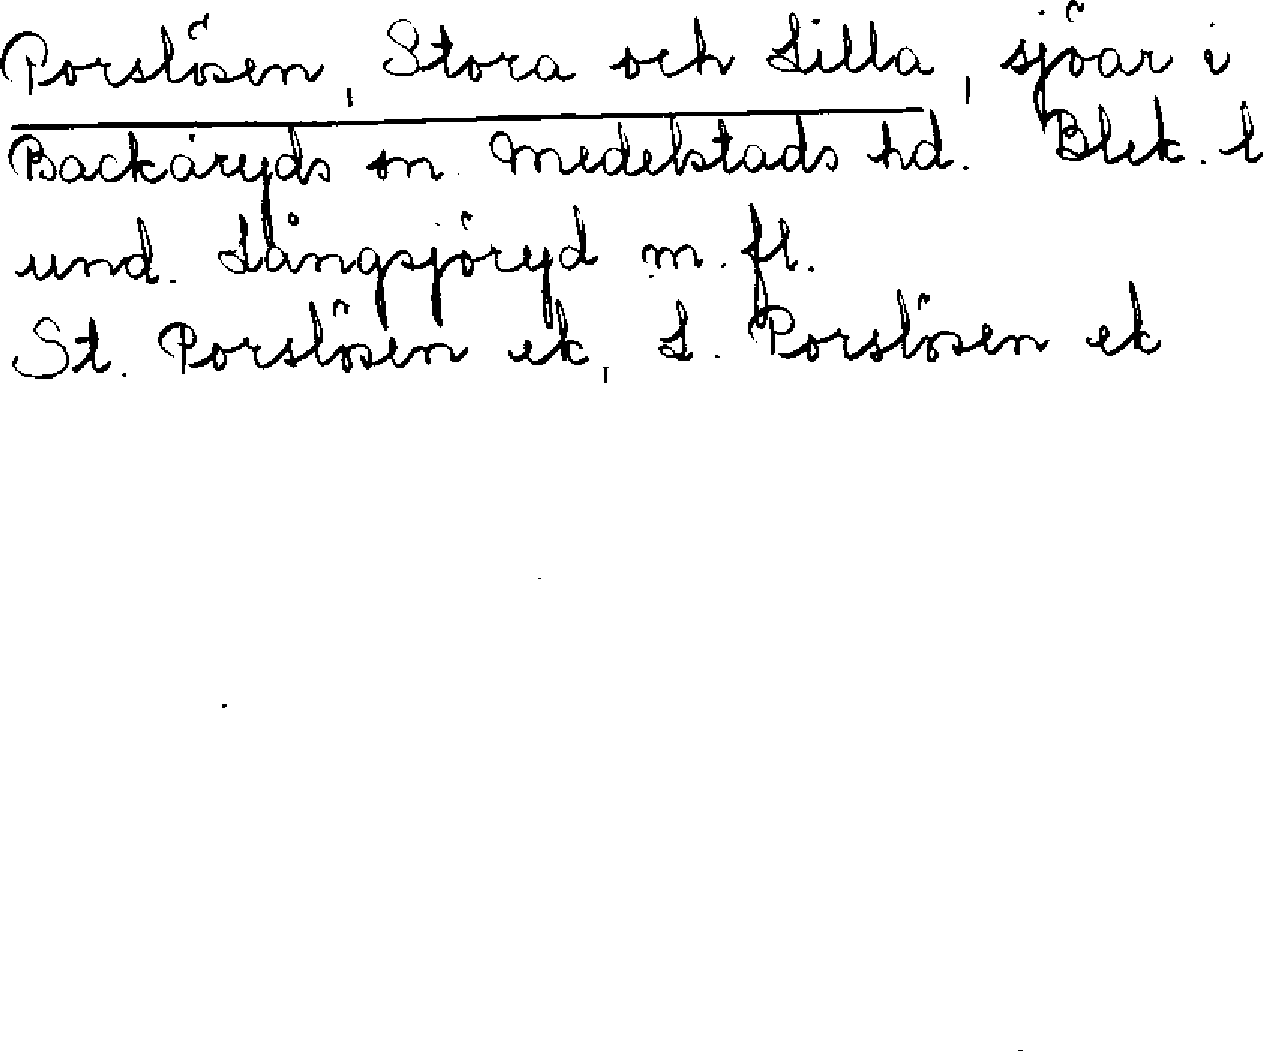 Porslösen, Stora och Lilla, sjöar i
Backaryds sn. Medelstads hd. Blek. l
und. Långsjöryd m. fl.
St. Porslösen ek, L. Porslösen ek